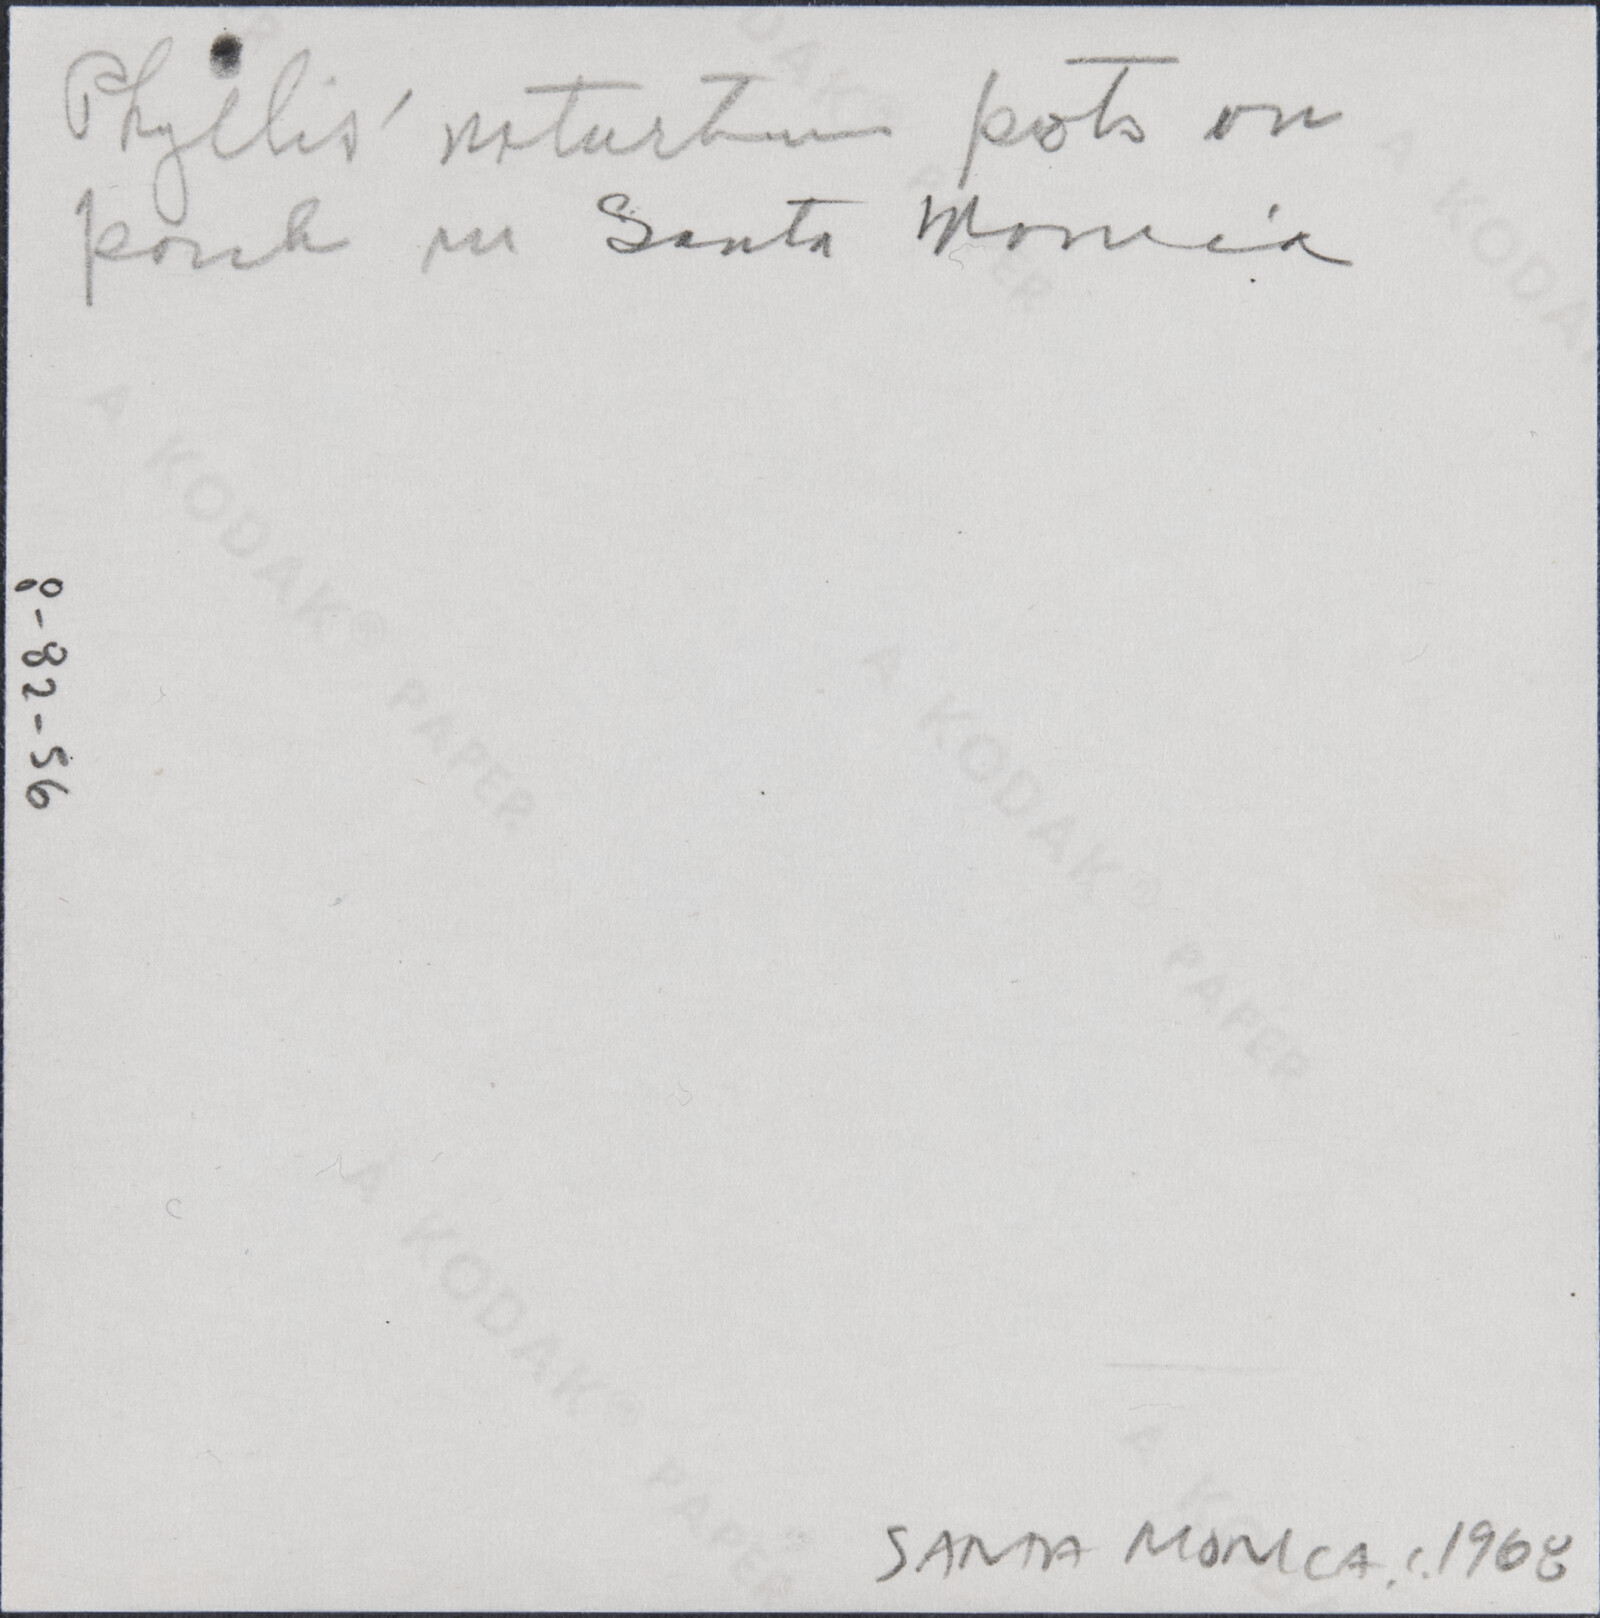 Phyllis' nasturtium pots on
porch in Santa Monica
8-82-56
A KODAK® PAPER
A KODAK® PAPER
A KODAK® PAPER
SANTA MONICA, c. 1968